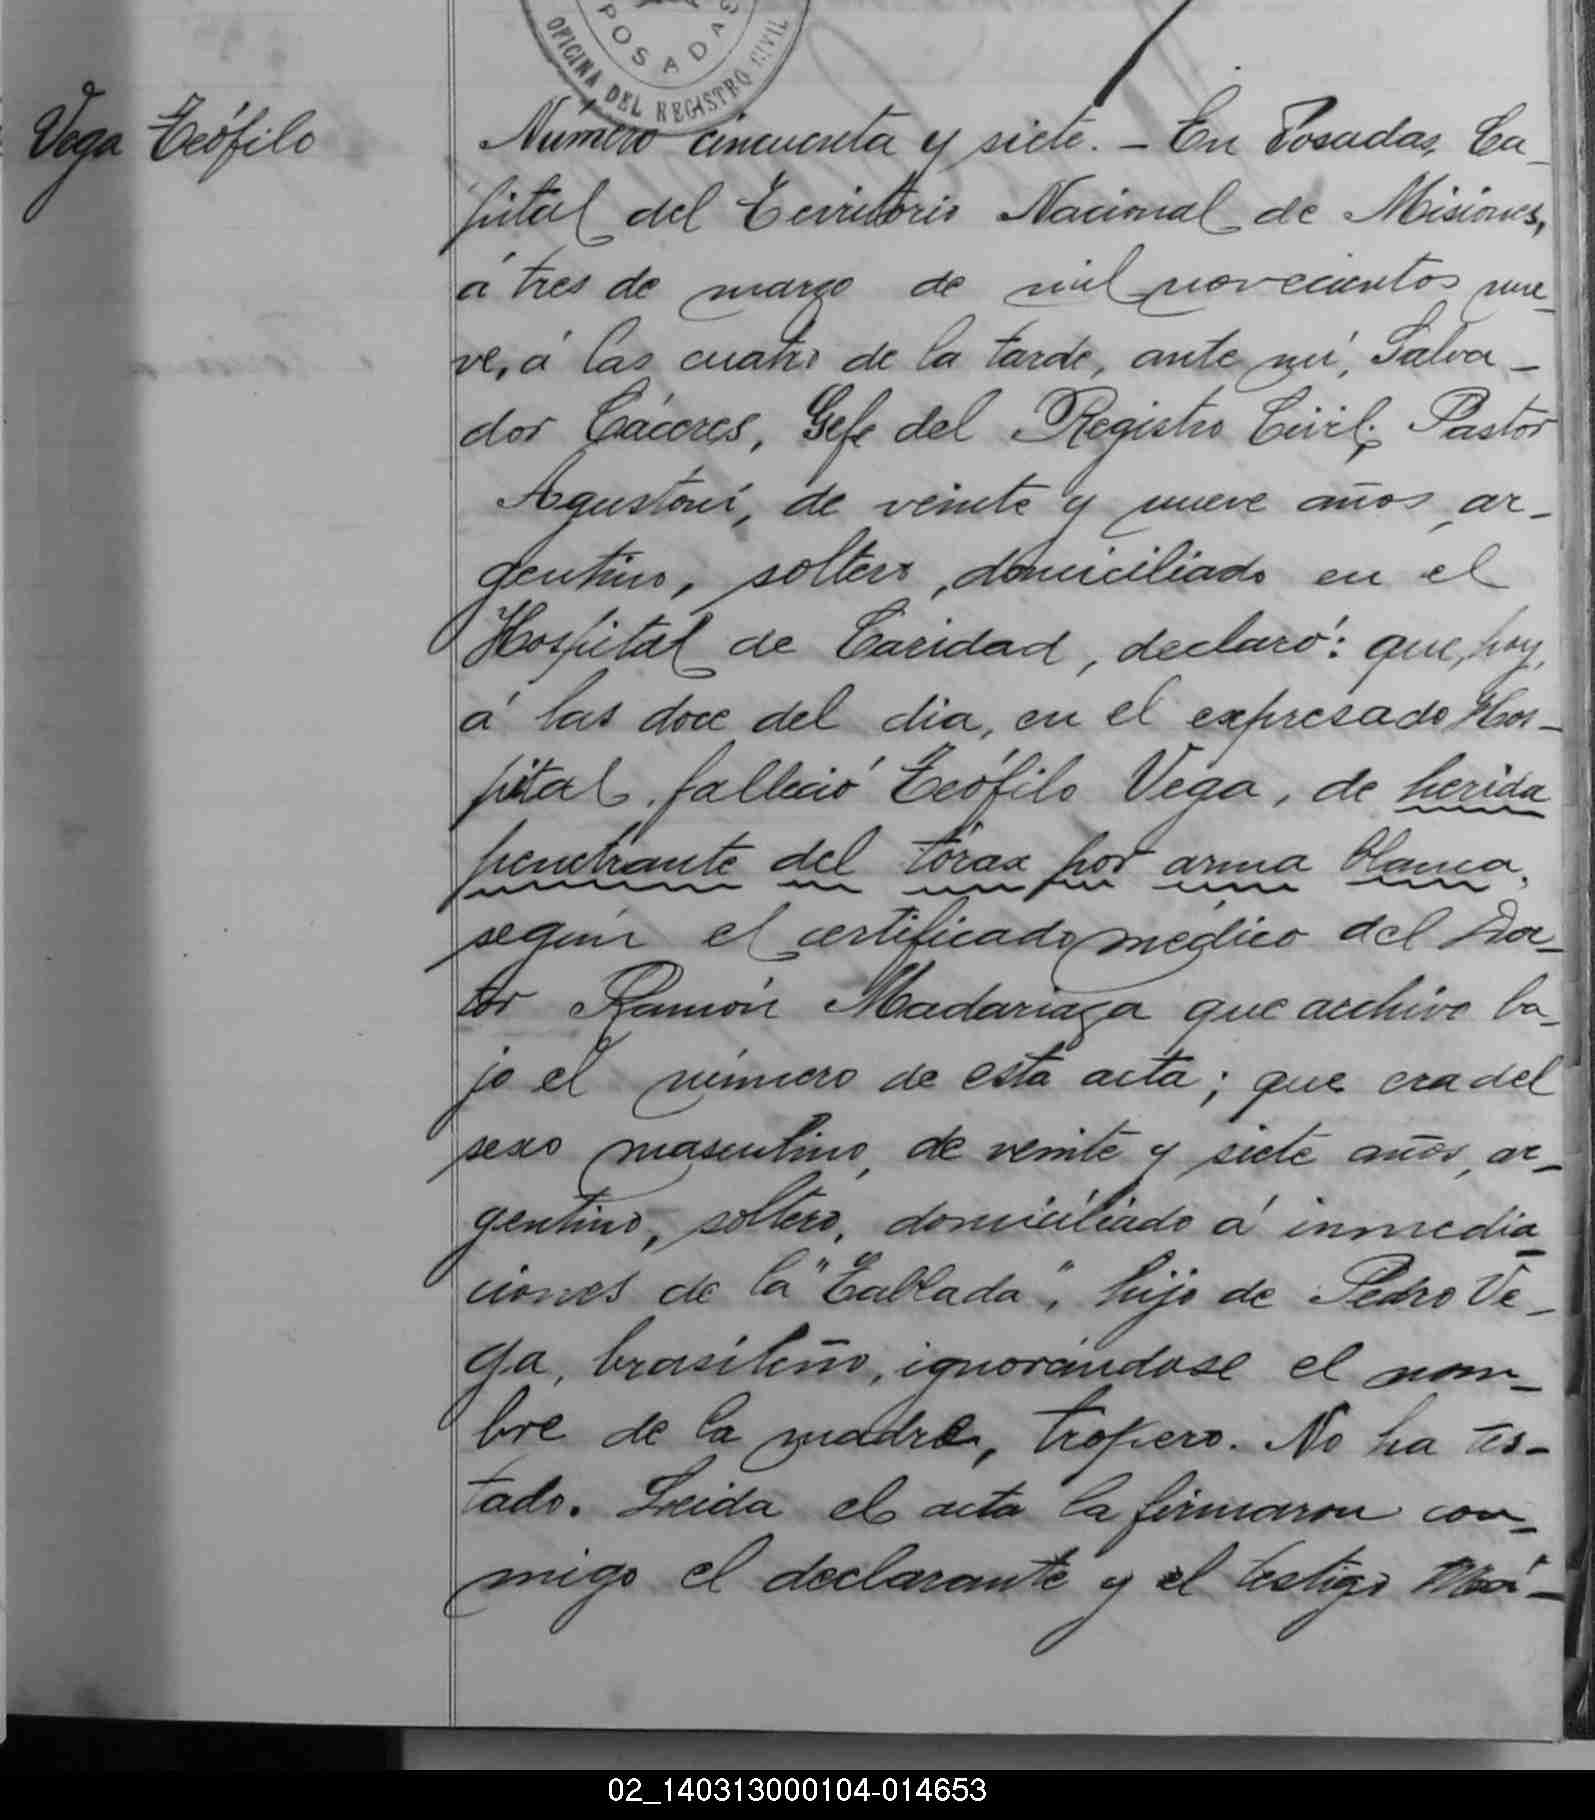 POSADAS
OFICINA DEL REGISTRO CIVIL
Vega Teófilo
Número cincuenta y siete. – En Posadas, Ca-
pital del Territorio Nacional de Misiones,
á tres de marzo de mil novecientos nue-
ve, á las cuatro de la tarde, ante mí, Salva-
dor Cáceres, Gefe del Registro Civil; Pastor
Agustoni, de veinte y nueve años, ar-
gentino, soltero, domiciliado en el
Hospital de Caridad, declaró: que, hoy,
á las doce del dia, en el expresado Hos-
pital, falleció Teófilo Vega, de herida
penetrante del tórax por arma blanca,
según el certificado médico del Doc-
tor Ramón Madariaga que archivo ba-
jo el número de esta acta; que era del
sexo masculino, de veinte y siete años, ar-
gentino, soltero, domiciliado á inmedia-
ciones de la "Tablada", hijo de Pedro Ve-
ga, brasileño, ignorándose el nom-
bre de la madre, tropero. No ha tes-
tado. Leida el acta la firmaron con-
migo el declarante y el testigo
02_140313000104-014653